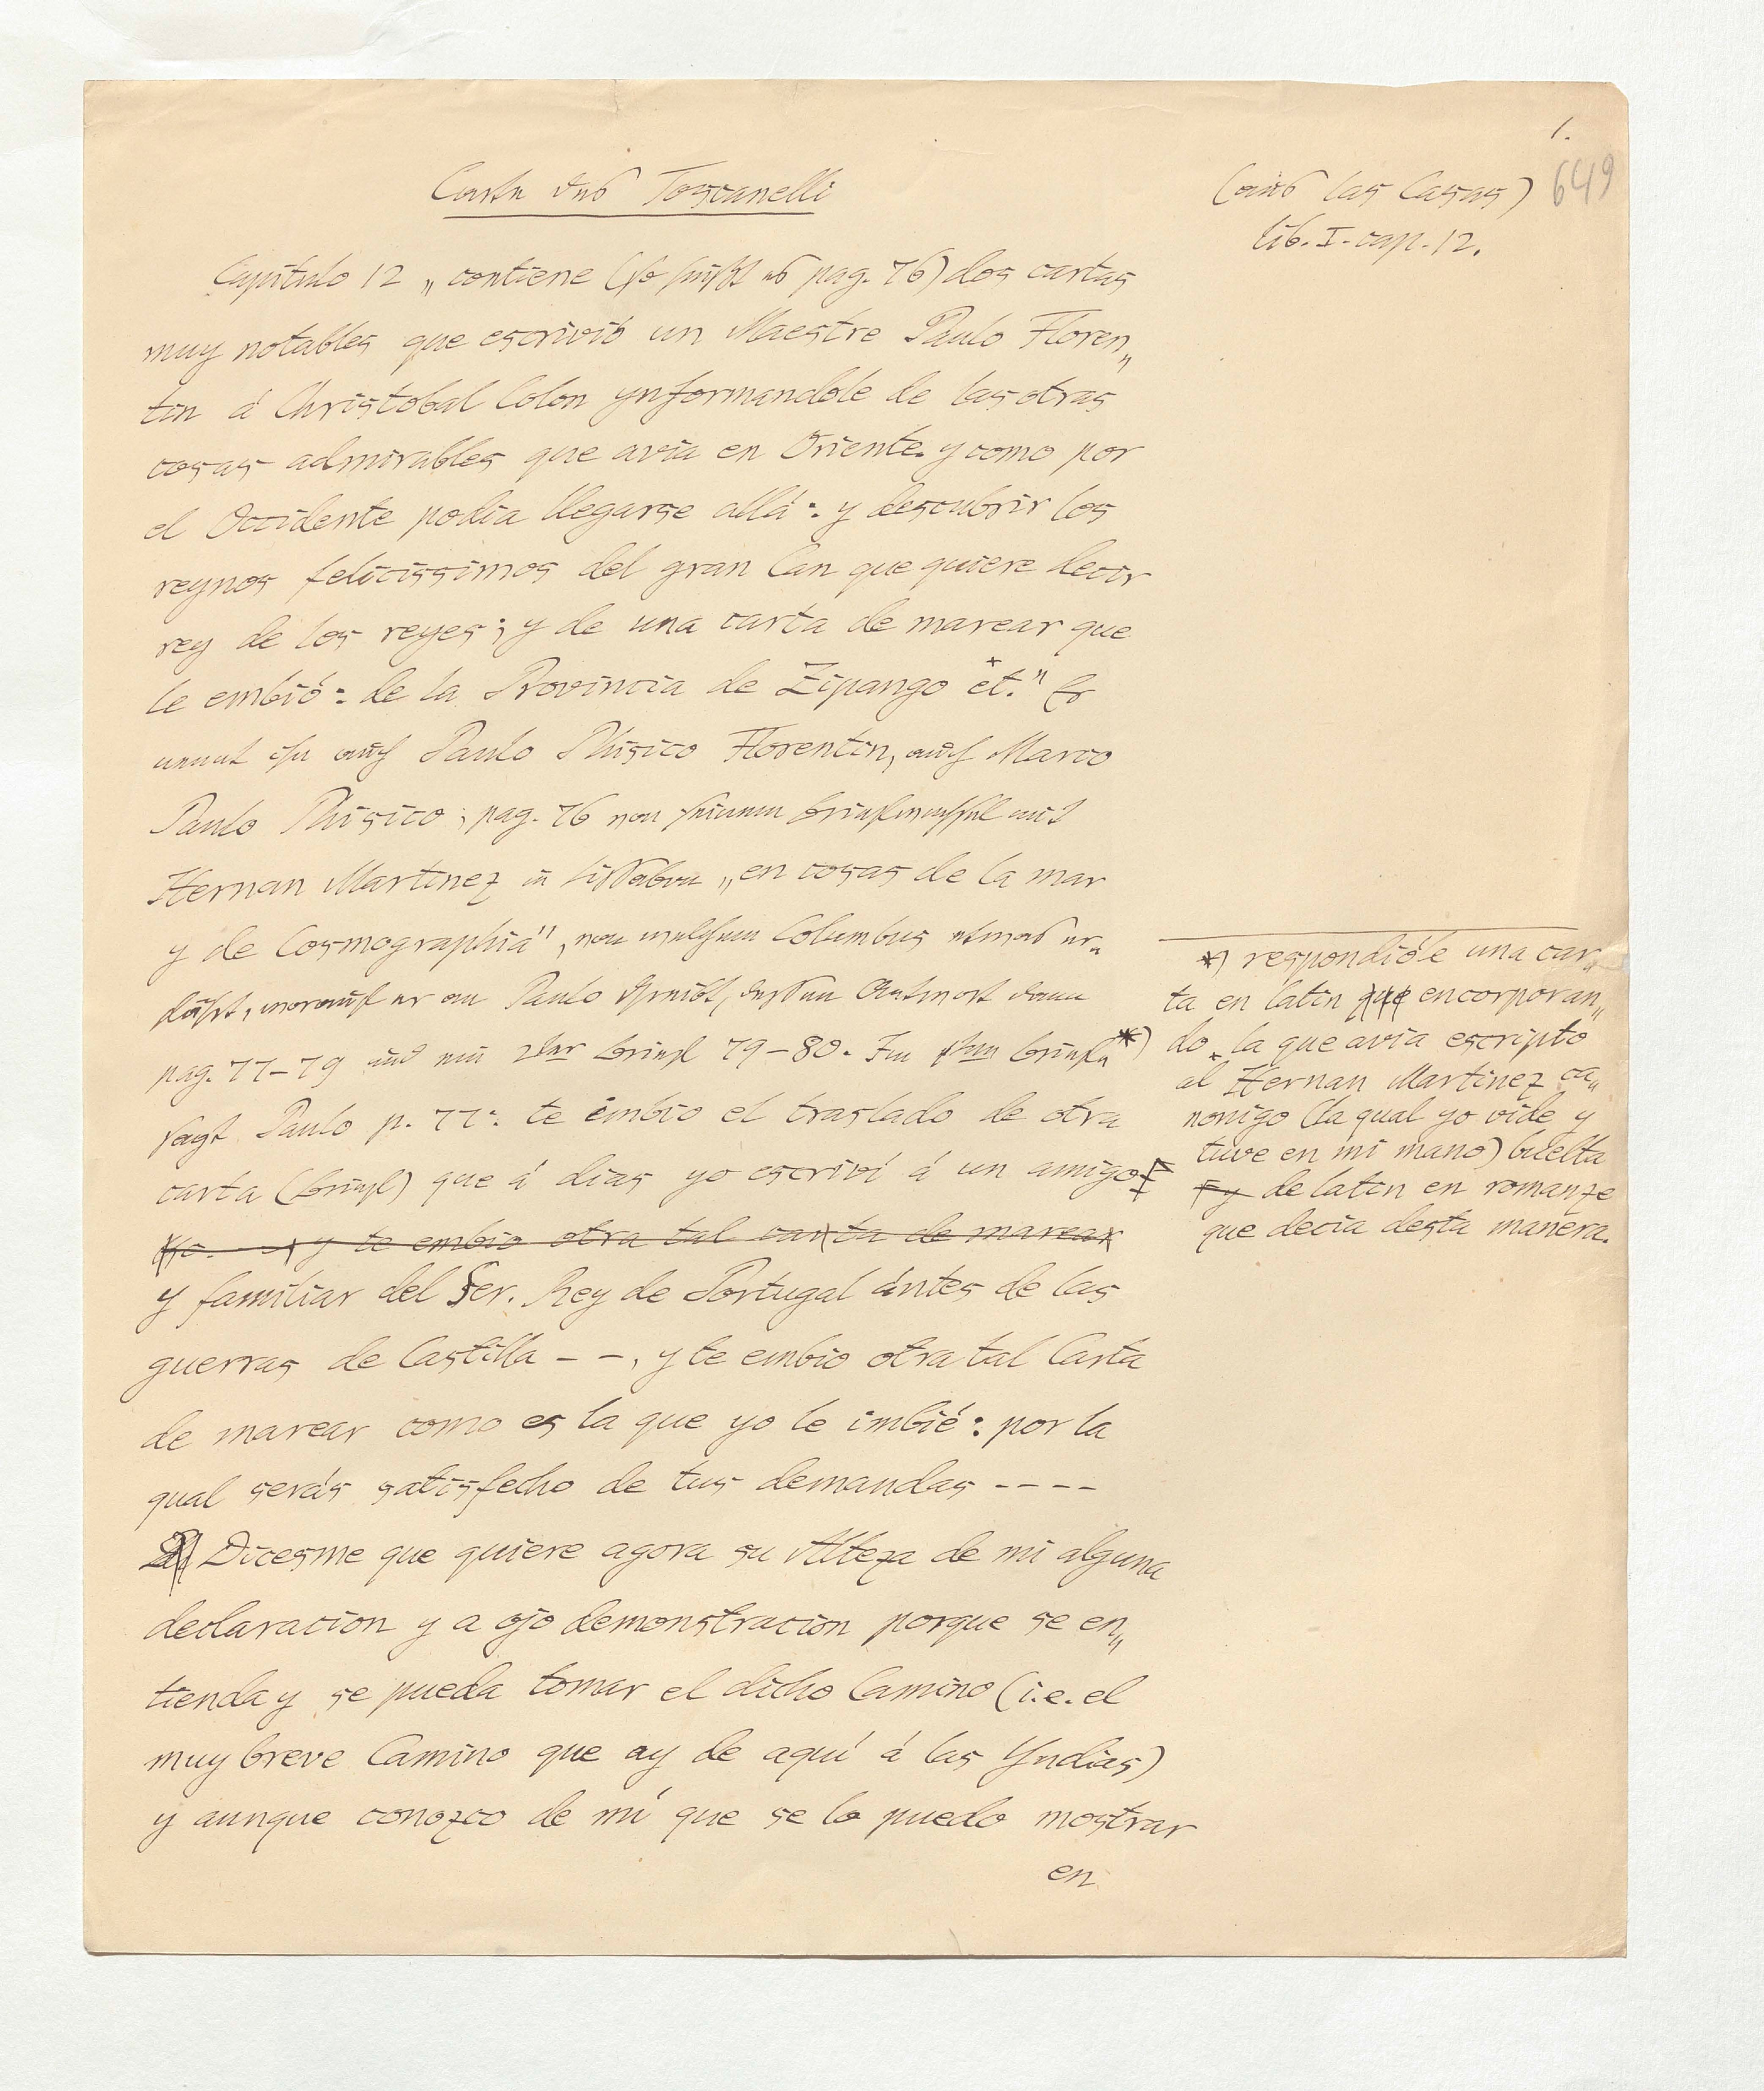 1.
649
Carte des Toscanelli
(aus las Casas)
lib. I. cap. 12.
Capitulo 12 „contiene (so heißt es pag. 76) dos cartas
muy notables que escrivió un Maestre Paulo Floren„
tin á Christobal Colon ynformandole de las otras
cosas admirables que avia en Oriente. y como por
el Occidente podia llegarse allá: y descubrir los
reynos felicissimos del gran Can que quiere decir
rey de los reyes; y de una carta de marear que
le embió: de la Provincia de Zipango et." Er
nennt ihn auch Paulo Phisico Florentin, auch Marco
Paulo Phisico; pag. 76 von seinem Briefwechsel mit
Hernan Martinez in Lissabon „en cosas de la mar
y de Cosmographia", von welchem Columbus etwas er„
fährt, worauf er an Paulo schreibt, dessen Antwort dann
pag. 77-79 und ein 2ter Brief 79-80. Im 1sten Briefe *)
sagt Paulo p. 77: te imbio el traslado de otra
carta (Brief) que á dias yo escriví á un amigo
y te embio otra tal carta de marear
y familiar del Ser. Rey de Portugal ántes de las
guerras de Castilla - -, y te embio otra tal Carta
de marear como es la que yo le imbié: por la
qual serás satisfecho de tus demandas ----
Dicesme que quiere agora su Alteza de mi alguna
declaracion y a ojo demonstracion porque se en„
tienda y se pueda tomar el dicho Camino (i.e. el
muy breve Camino que ay de aquí á las Yndias)
y aunque conozco de mí que se lo puedo mostrar
en
*) respondióle una car„
ta en latin que encorporan„
do la que avia escripto
al Hernan Martinez ca„
nonigo (la qual yo vide y
tuve en mi mano) buelta
y de latin en romanze
que decia desta manera.